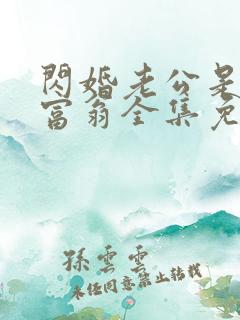 閃婚老公是
富翁全集免
孫雲雲
未經同意禁止轉載